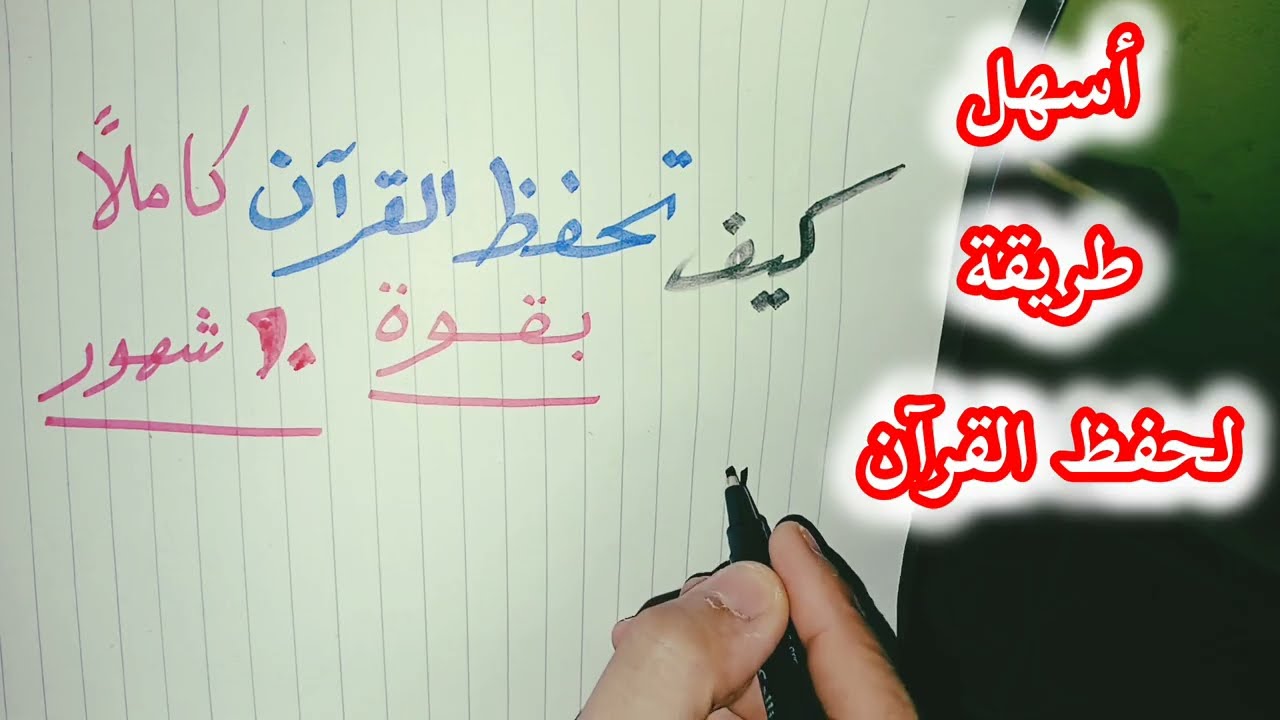 كيف تحفظ القرآن كاملاً
بقوة ١٠ شهور
أسهل
طريقة
لحفظ القرآن